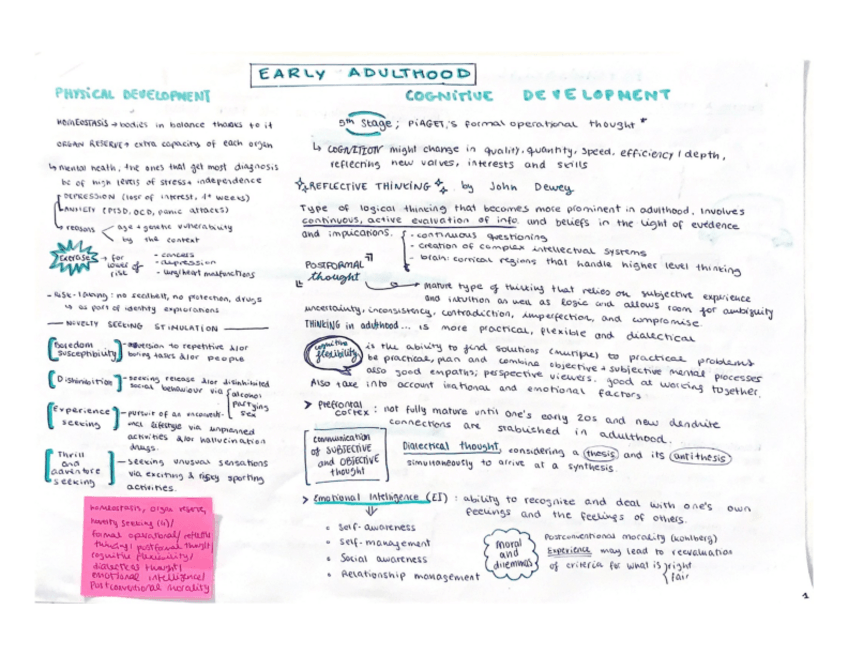 EARLY ADULTHOOD
PHYSICAL DEVELOPMENT
HOMEOSTASIS → bodies in balance thanks to it
ORGAN RESERVE → extra capacity of each organ
↳ mental heath, the ones that get most diagnosis
bc of high levels of stress + independence
DEPRESSION (loss of interest, 1+ weeks)
ANXIETY (PTSD, OCD, panic attacks)
→ reasons age + genetic vulnerability
by the context
Exercise → for lower of risk
- cancers
- depression
- lung/heart malfunctions
- Risk-taking: no seatbelt, no protection, drugs
↳ as part of identity explorations
NOVELTY SEEKING STIMULATION
Boredom susceptibility - aversion to repetitive &/or
boring tasks &/or people
Dishinibition - seeking release &/or disinhibited
social behaviour via alcohol
partying
sex
Experience seeking - pursuit of an
lifestyle via unplanned
activities &/or hallucination
drugs.
Thrill and adventure seeking - seeking unusual sensations
via exciting & risky sporting
activities.
homeostasis, organ reserve,
novelty seeking (4)/
formal operational/ reflective
thinking/ postformal thought/
cognitive flexibility/
dialectical thought/
emotional intelligence/
postconventional morality
COGNITIVE DEVELOPMENT
5th stage; PIAGET'S formal operational thought *
↳ COGNITION might change in quality, quantity, speed, efficiency / depth,
reflecting new values, interests and skills
REFLECTIVE THINKING by John Dewey
Type of logical thinking that becomes more prominent in adulthood. Involves
continuous, active evaluation of info and beliefs in the light of evidence
and implications.
- continuous questioning
- creation of complex intellectual systems
- brain: cortical regions that handle higher level thinking
POSTFORMAL thought
→ mature type of thinking that relies on subjective experience
and intuition as well as logic and allows room for ambiguity
uncertainty, inconsistency, contradiction, imperfection, and compromise.
THINKING in adulthood... is more practical, flexible and dialectical
cognitive flexibility is the ability to find solutions (multiple) to practical problems
be practical, plan and combine objective + subjective mental processes
also good empaths; perspective viewers. good at working together.
Also take into account irrational and emotional factors.
> Prefrontal cortex: not fully mature until one's early 20s and new dendrite
connections are stablished in adulthood.
communication
of SUBJECTIVE
and OBJECTIVE
thought
Dialectical thought, considering a thesis and its antithesis
simultaneously to arrive at a synthesis.
> Emotional Intelligence (EI): ability to recognize and deal with one's own
feelings and the feelings of others.
• Self-awareness
• Self-management
• Social awareness
• Relationship management
moral
and
dilemmas
Postconventional morality (Kohlberg)
Experience may lead to reevaluation
of criteria for what is right
fair
1